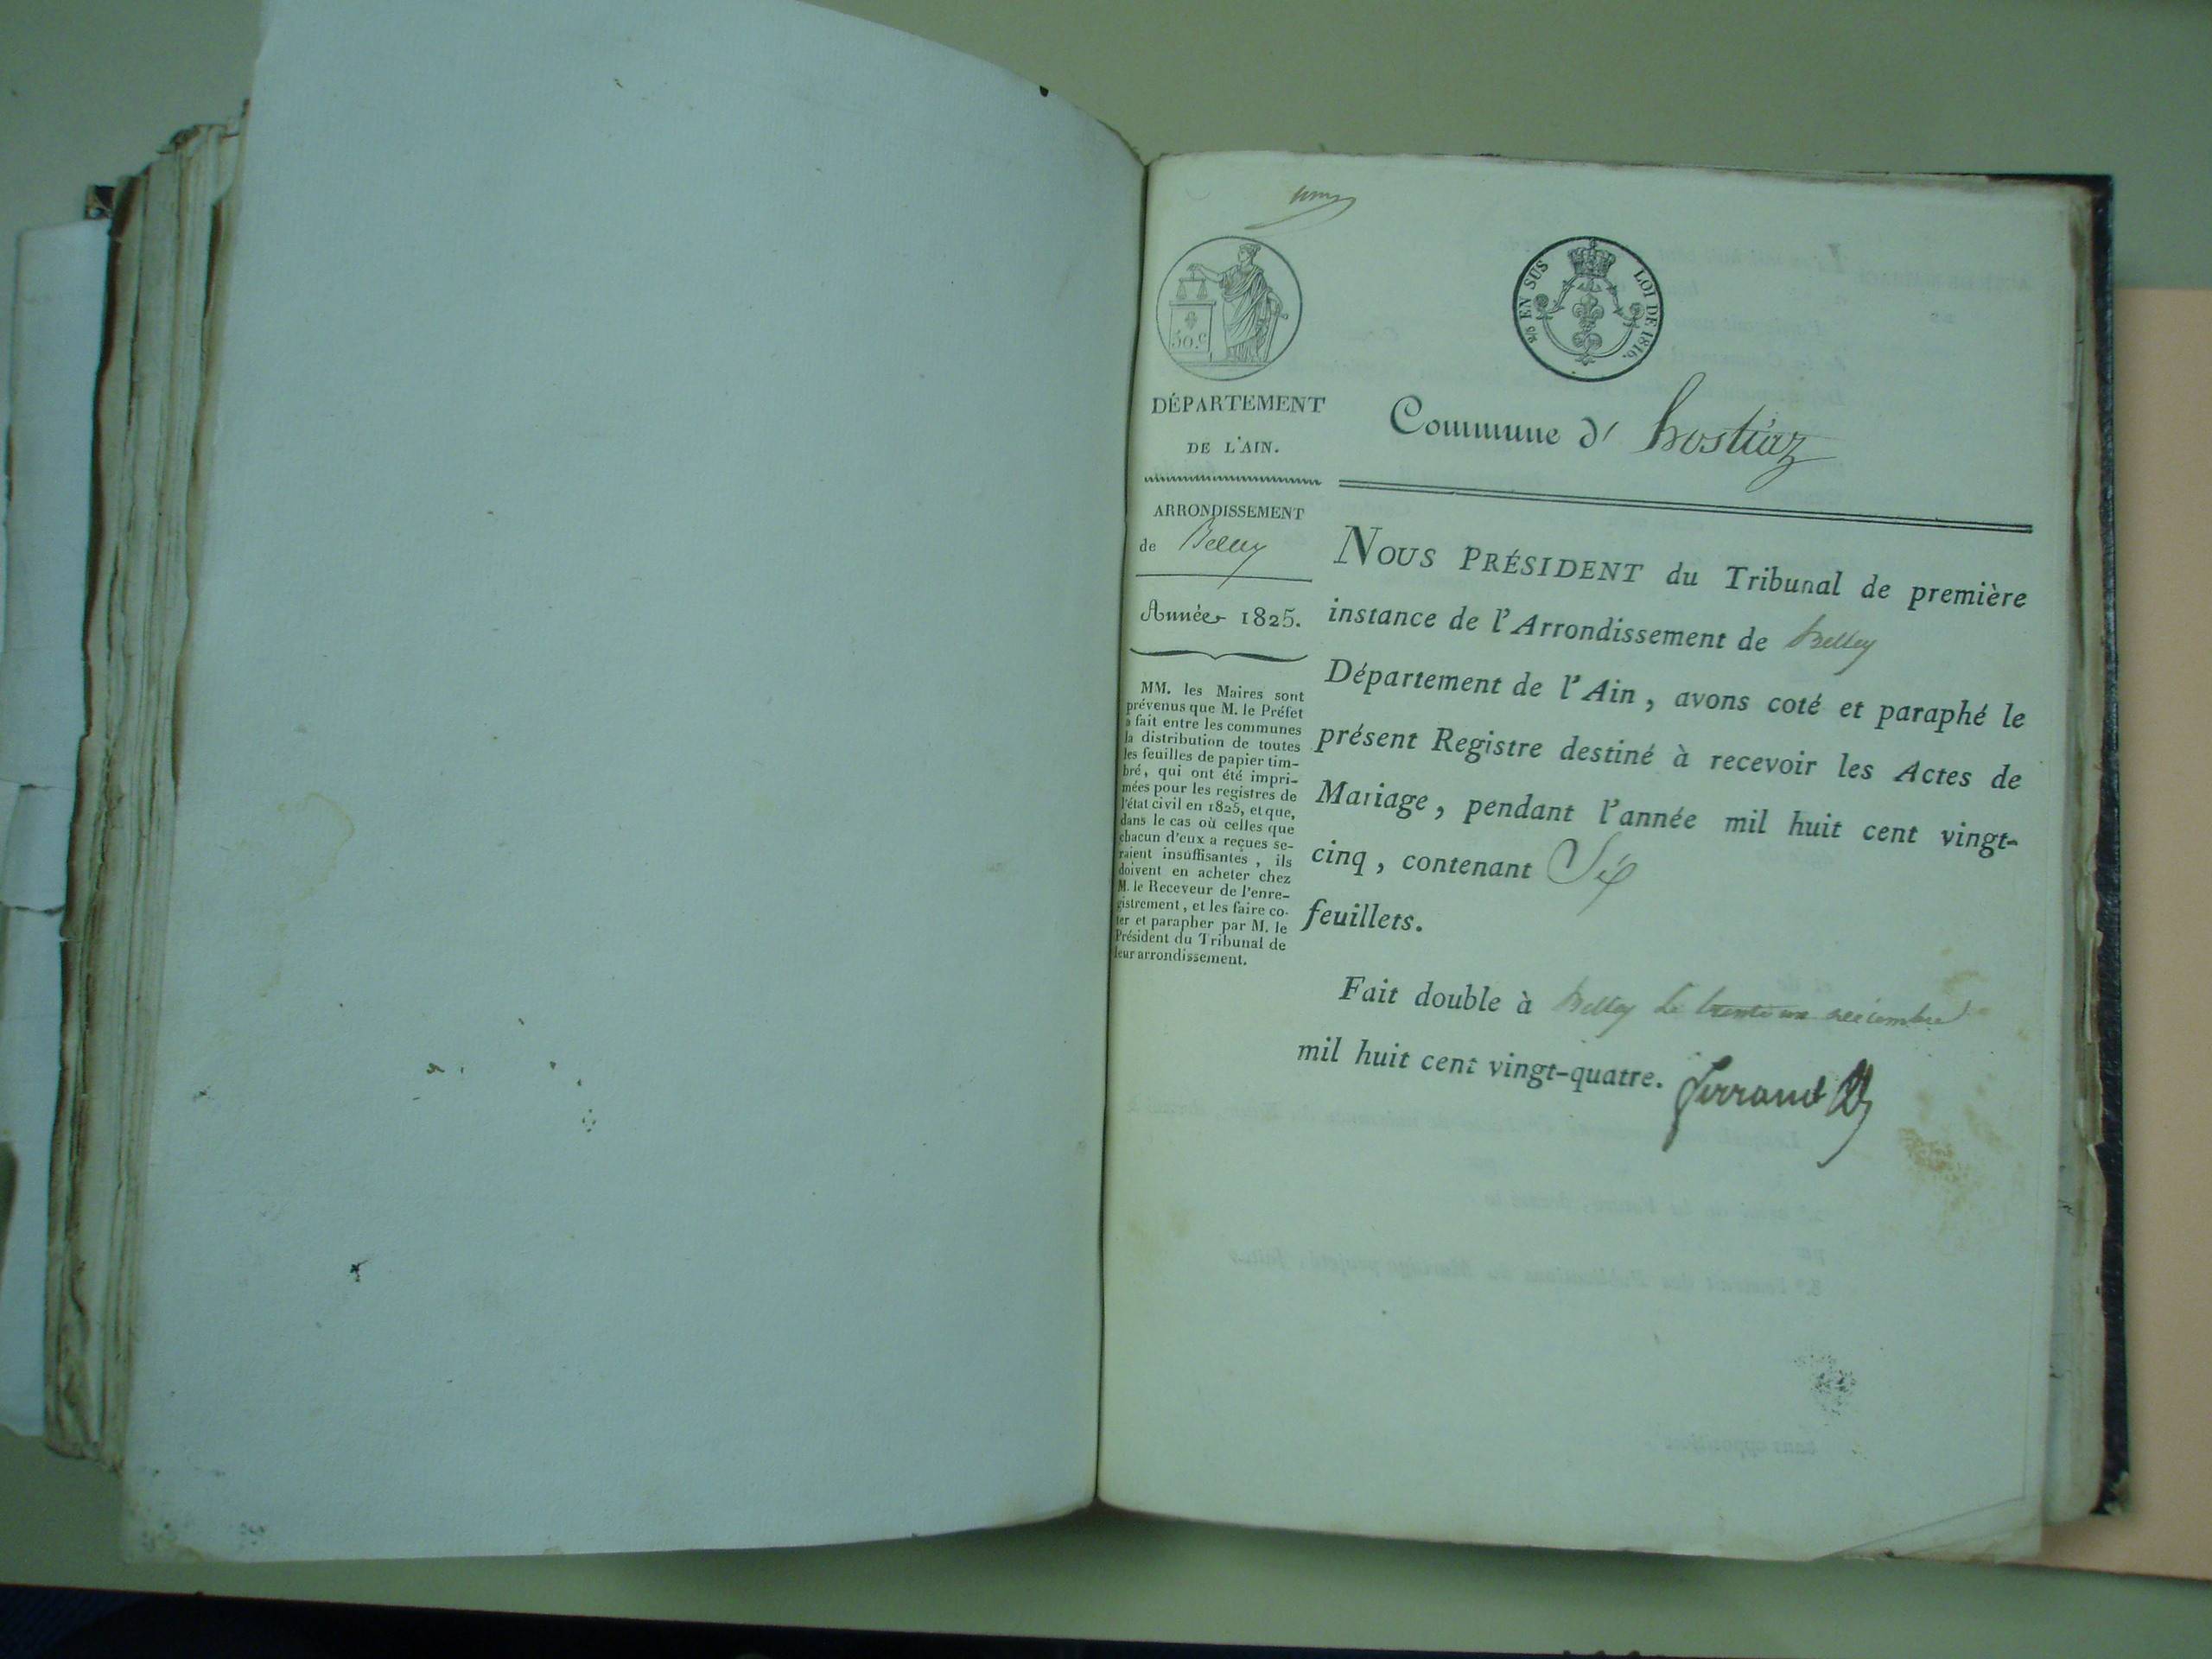 50.c
2/10 EN SUS LOI DE 1816.
DÉPARTEMENT
DE L'AIN.
Commune d' hostiaz
ARRONDISSEMENT
de Belley
Année 1825.
MM. les Maires sont
prévenus que M. le Préfet
a fait entre les communes
la distribution de toutes
les feuilles de papier tim-
bré, qui ont été impri-
mées pour les registres de
l'état civil en 1825, et que,
dans le cas où celles que
chacun d'eux a reçues se-
raient insuffisantes, ils
doivent en acheter chez
M. le Receveur de l'enre-
gistrement, et les faire co-
ter et parapher par M. le
Président du Tribunal de
leur arrondissement.
NOUS PRÉSIDENT du Tribunal de première
instance de l'Arrondissement de Belley
Département de l'Ain, avons coté et paraphé le
présent Registre destiné à recevoir les Actes de
Mariage, pendant l'année mil huit cent vingt-
cinq, contenant Six
feuillets.
Fait double à Belley le trente un décembre
mil huit cent vingt-quatre. ferrand